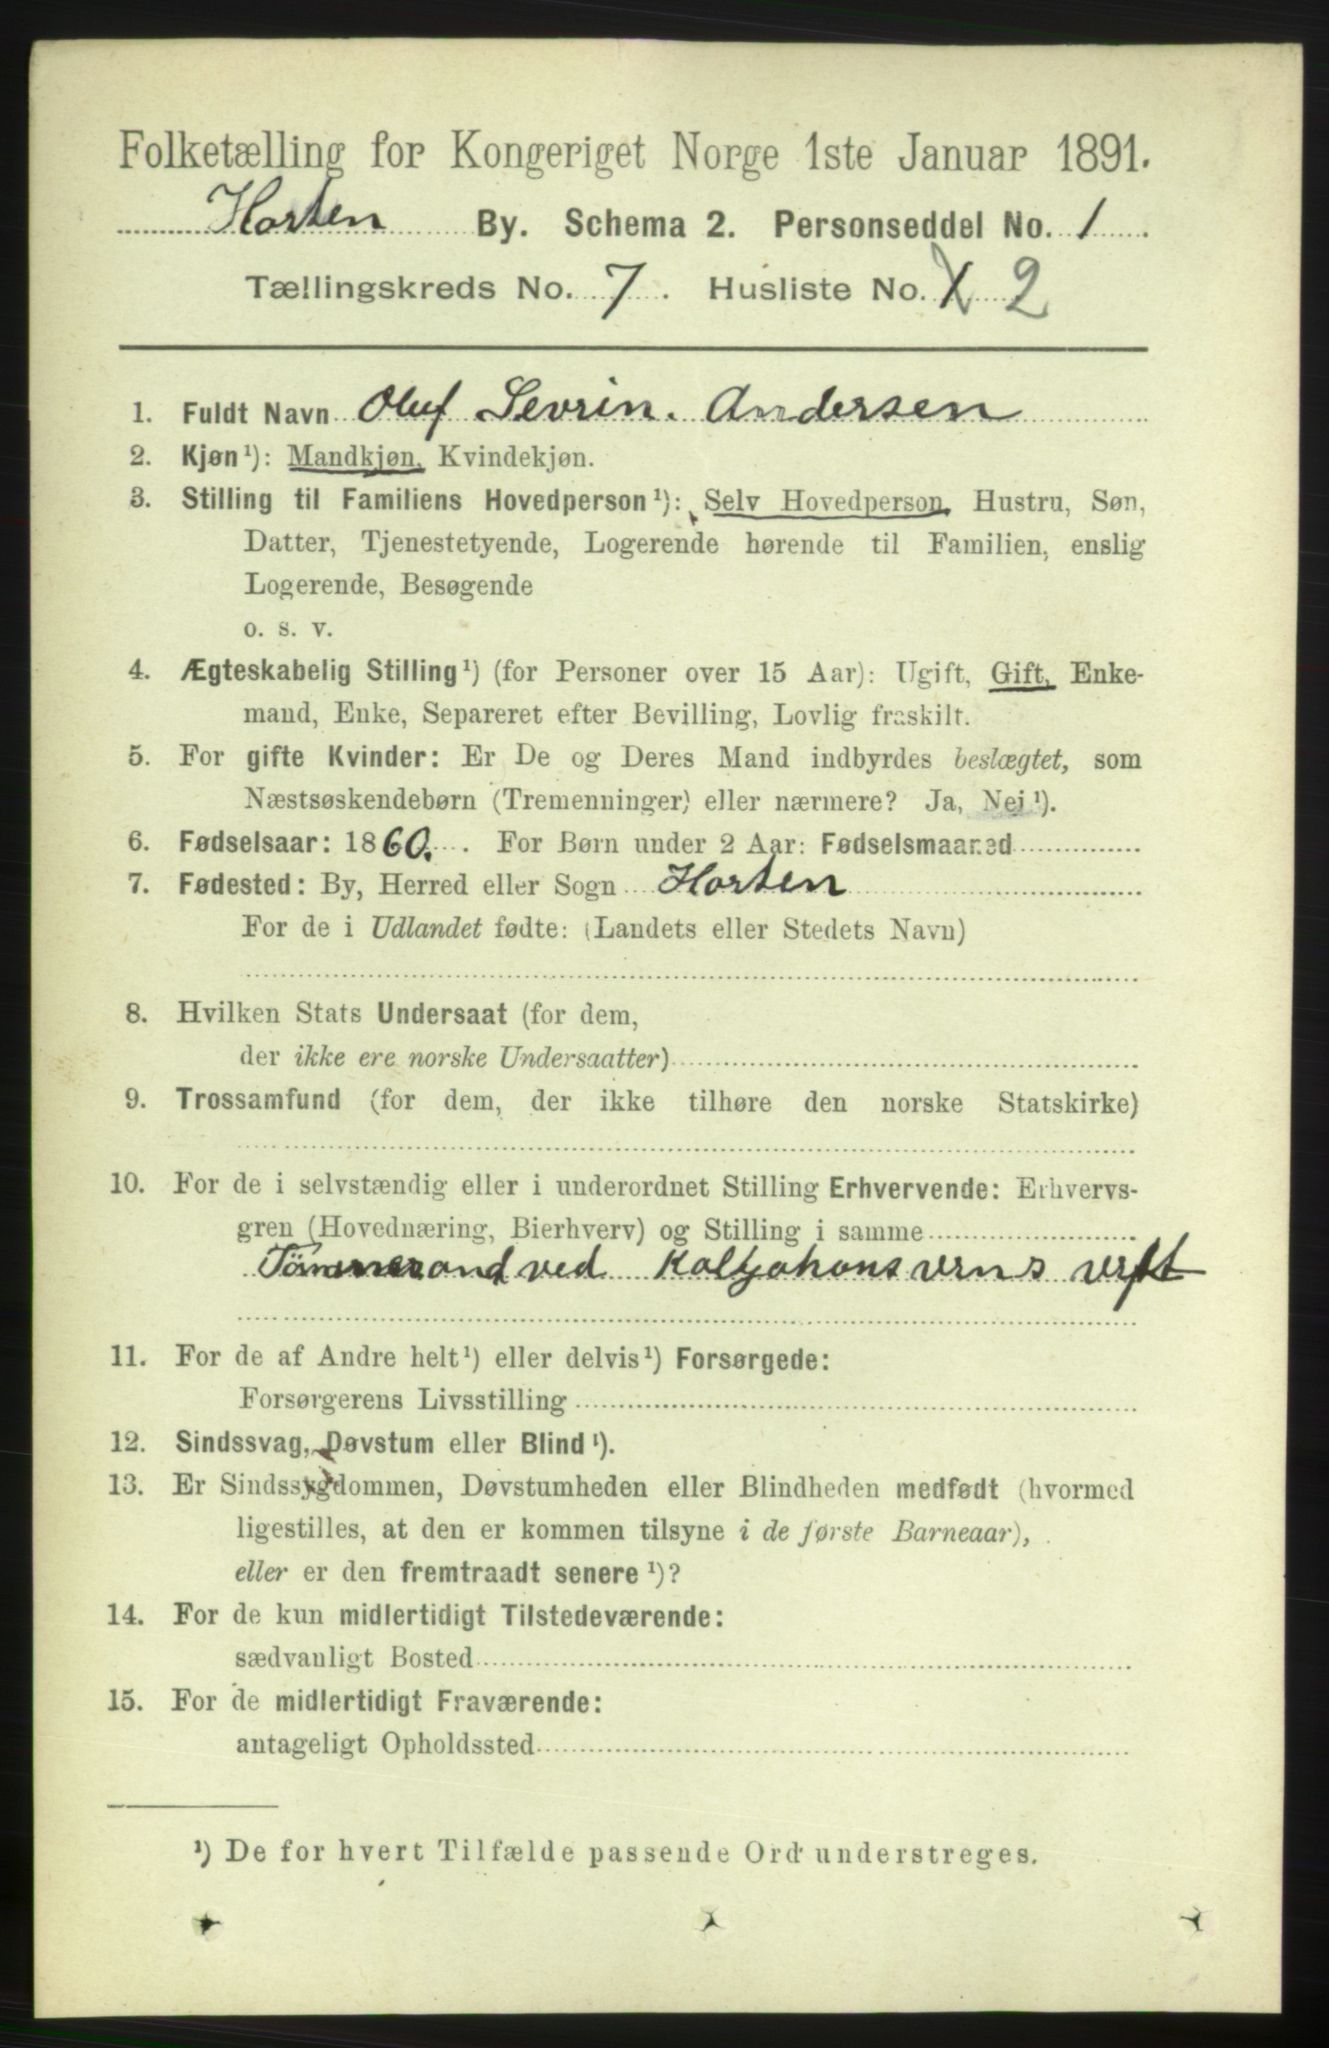 Folketælling for Kongeriget Norge 1ste Januar 1891.
Horten By. Schema 2. Personseddel No. 1
Tællingskreds No. 7. Husliste No. 2
1. Fuldt Navn Oluf Sevrin. Andersen
2. Kjøn¹): Mandkjøn, Kvindekjøn.
3. Stilling til Familiens Hovedperson¹): Selv Hovedperson, Hustru, Søn,
Datter, Tjenestetyende, Logerende hørende til Familien, enslig
Logerende, Besøgende
o. s. v.
4. Ægteskabelig Stilling¹) (for Personer over 15 Aar): Ugift, Gift, Enke-
mand, Enke, Separeret efter Bevilling, Lovlig fraskilt.
5. For gifte Kvinder: Er De og Deres Mand indbyrdes beslægtet, som
Næstsøskendebørn (Tremenninger) eller nærmere? Ja, Nei¹).
6. Fødselsaar: 1860. For Børn under 2 Aar: Fødselsmaaned
7. Fødested: By, Herred eller Sogn Horten
For de i Udlandet fødte: (Landets eller Stedets Navn)
8. Hvilken Stats Undersaat (for dem,
der ikke ere norske Undersaatter)
9. Trossamfund (for dem, der ikke tilhøre den norske Statskirke)
10. For de i selvstændig eller i underordnet Stilling Erhvervende: Erhvervs-
gren (Hovednæring, Bierhverv) og Stilling i samme
Tömmerand ved Kaljohansverns verft
11. For de af Andre helt¹) eller delvis¹) Forsørgede:
Forsørgerens Livsstilling
12. Sindssvag, Døvstum eller Blind¹).
13. Er Sindssygdommen, Døvstumheden eller Blindheden medfødt (hvormed
ligestilles, at den er kommen tilsyne i de første Barneaar),
eller er den fremtraadt senere¹)?
14. For de kun midlertidigt Tilstedeværende:
sædvanligt Bosted
15. For de midlertidigt Fraværende:
antageligt Opholdssted
¹) De for hvert Tilfælde passende Ord understreges.